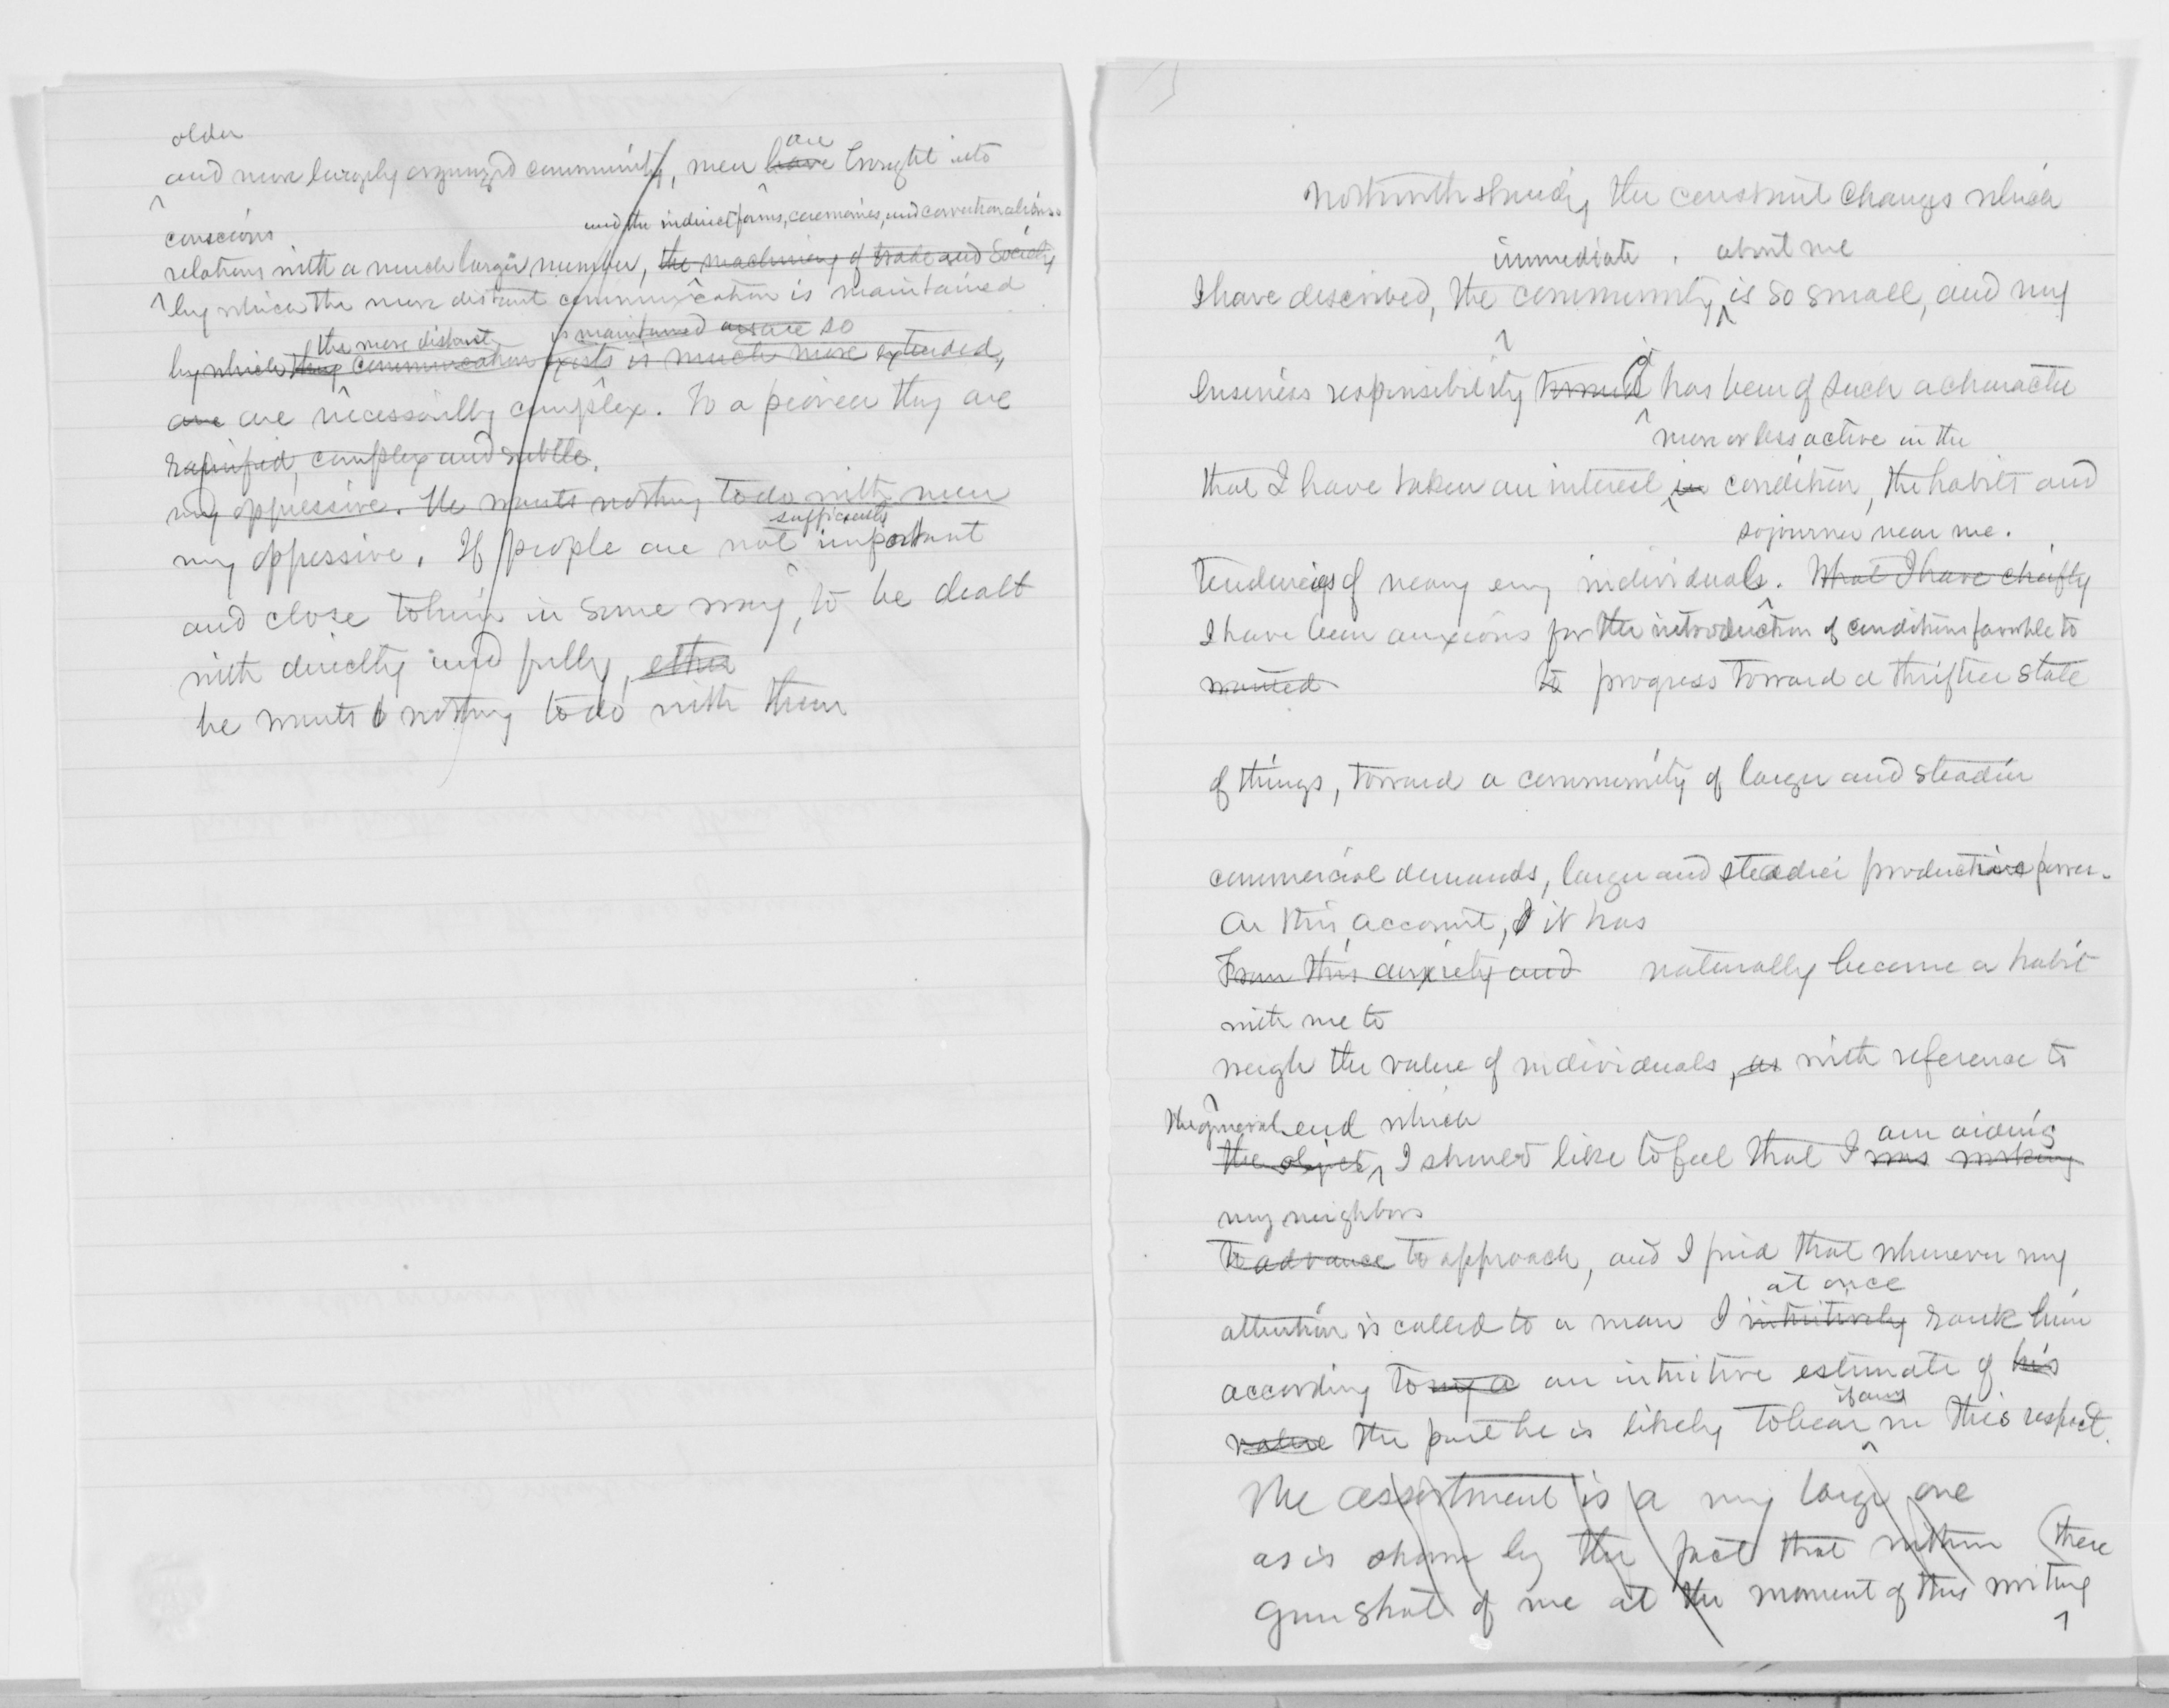 older
and more largely organized community, men have are brought into
conscious
and the indirect forms, ceremonies, and conventionalisms
relations with a much larger number, the machinery of trade and Society
by which the more distant communication is maintained
the more distant is maintained so
by which they communication exists is much more extended,
are are necessarily complex. To a pioneer they are
complex and subtle.
very oppressive. He wants nothing to do with men
sufficiently
very oppressive. If people are not important
and close to him in some way, to be dealt
with directly and fully, either
he wants nothing to do with them
Notwithstanding the constant changes which
immediate about me
I have described, the community is so small, and my
business responsibility toward has been of such a character
more or less active in the
that I have taken an interest in condition, the habits and
sojourner near me.
tendencies of nearly every individual. What I have chiefly
I have been anxious for the introduction of conditions favorable to
wanted to progress toward a thriftier state
of things, toward a community of larger and steadier
commercial demands, larger and steadier productive power.
On this account, it has
From this anxiety and naturally become a habit
with me to
weigh the value of individuals, as with reference to
the general end which
am aiding
the object, I should like to feel that I was working
my neighbors
to advance to approach, and I find that whenever my
at once
attention is called to a man I intuitively rank him
according to my a an intuitive estimate of his
if any
value the part he is likely to bear in this respect.
The assortment is a very large one
as is shown by the fact that within there
gun shot of me at the moment of this writing